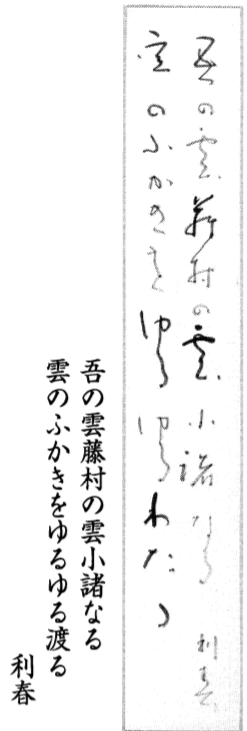 吾の雲藤村の雲小諸なる 利春
雲のふかきをゆるゆるわたる
吾の雲藤村の雲小諸なる
雲のふかきをゆるゆる渡る
利春